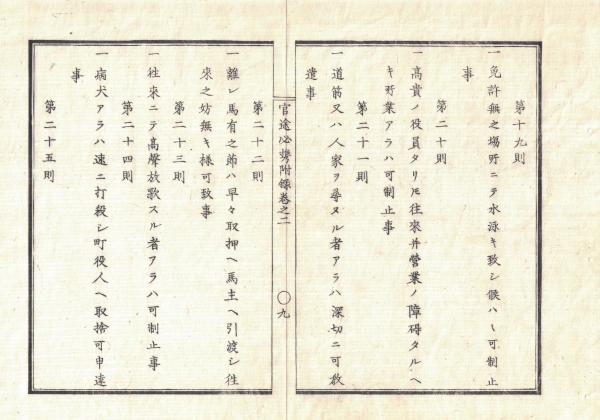 第十九則
一 免許無之場所ニテ水泳キ致シ候ハヽ可制止
事
第二十則
一 高貴ノ役員タリ𪜈往來并營業ノ障碍タルヘ
キ所業アラハ可制止事
第二十一則
一 道筋又ハ人家ヲ尋ヌル者アラハ深切ニ可敎
遣事
官途必携附錄卷之二
〇九
第二十二則
一 離レ馬有之節ハ早々取押ヘ馬主ヘ引渡シ徃
來之妨無キ樣可致事
第二十三則
一 徃來ニテ高聲放歌スル者アラハ可制止事
第二十四則
一 病犬アラハ速ニ打殺シ町役人ヘ取捨可申達
事
第二十五則